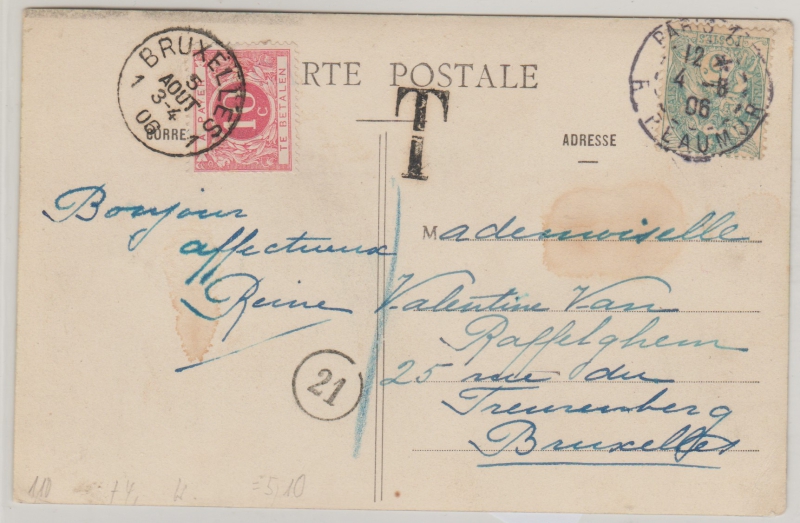 CARTE POSTALE
BRUXELLES
5
AOUT
3-4
1 1
06
A PAYER
10c
TE BETALEN
T
PARIS
12 *
4 - 8
06
R. REAUMUR
CORRE
ADRESSE
Bonjour
affectueux
Reine
Mademoiselle
Valentine Van
Raffelghem
25 rue du
Treurenberg
Bruxelles
21
110
=5,10